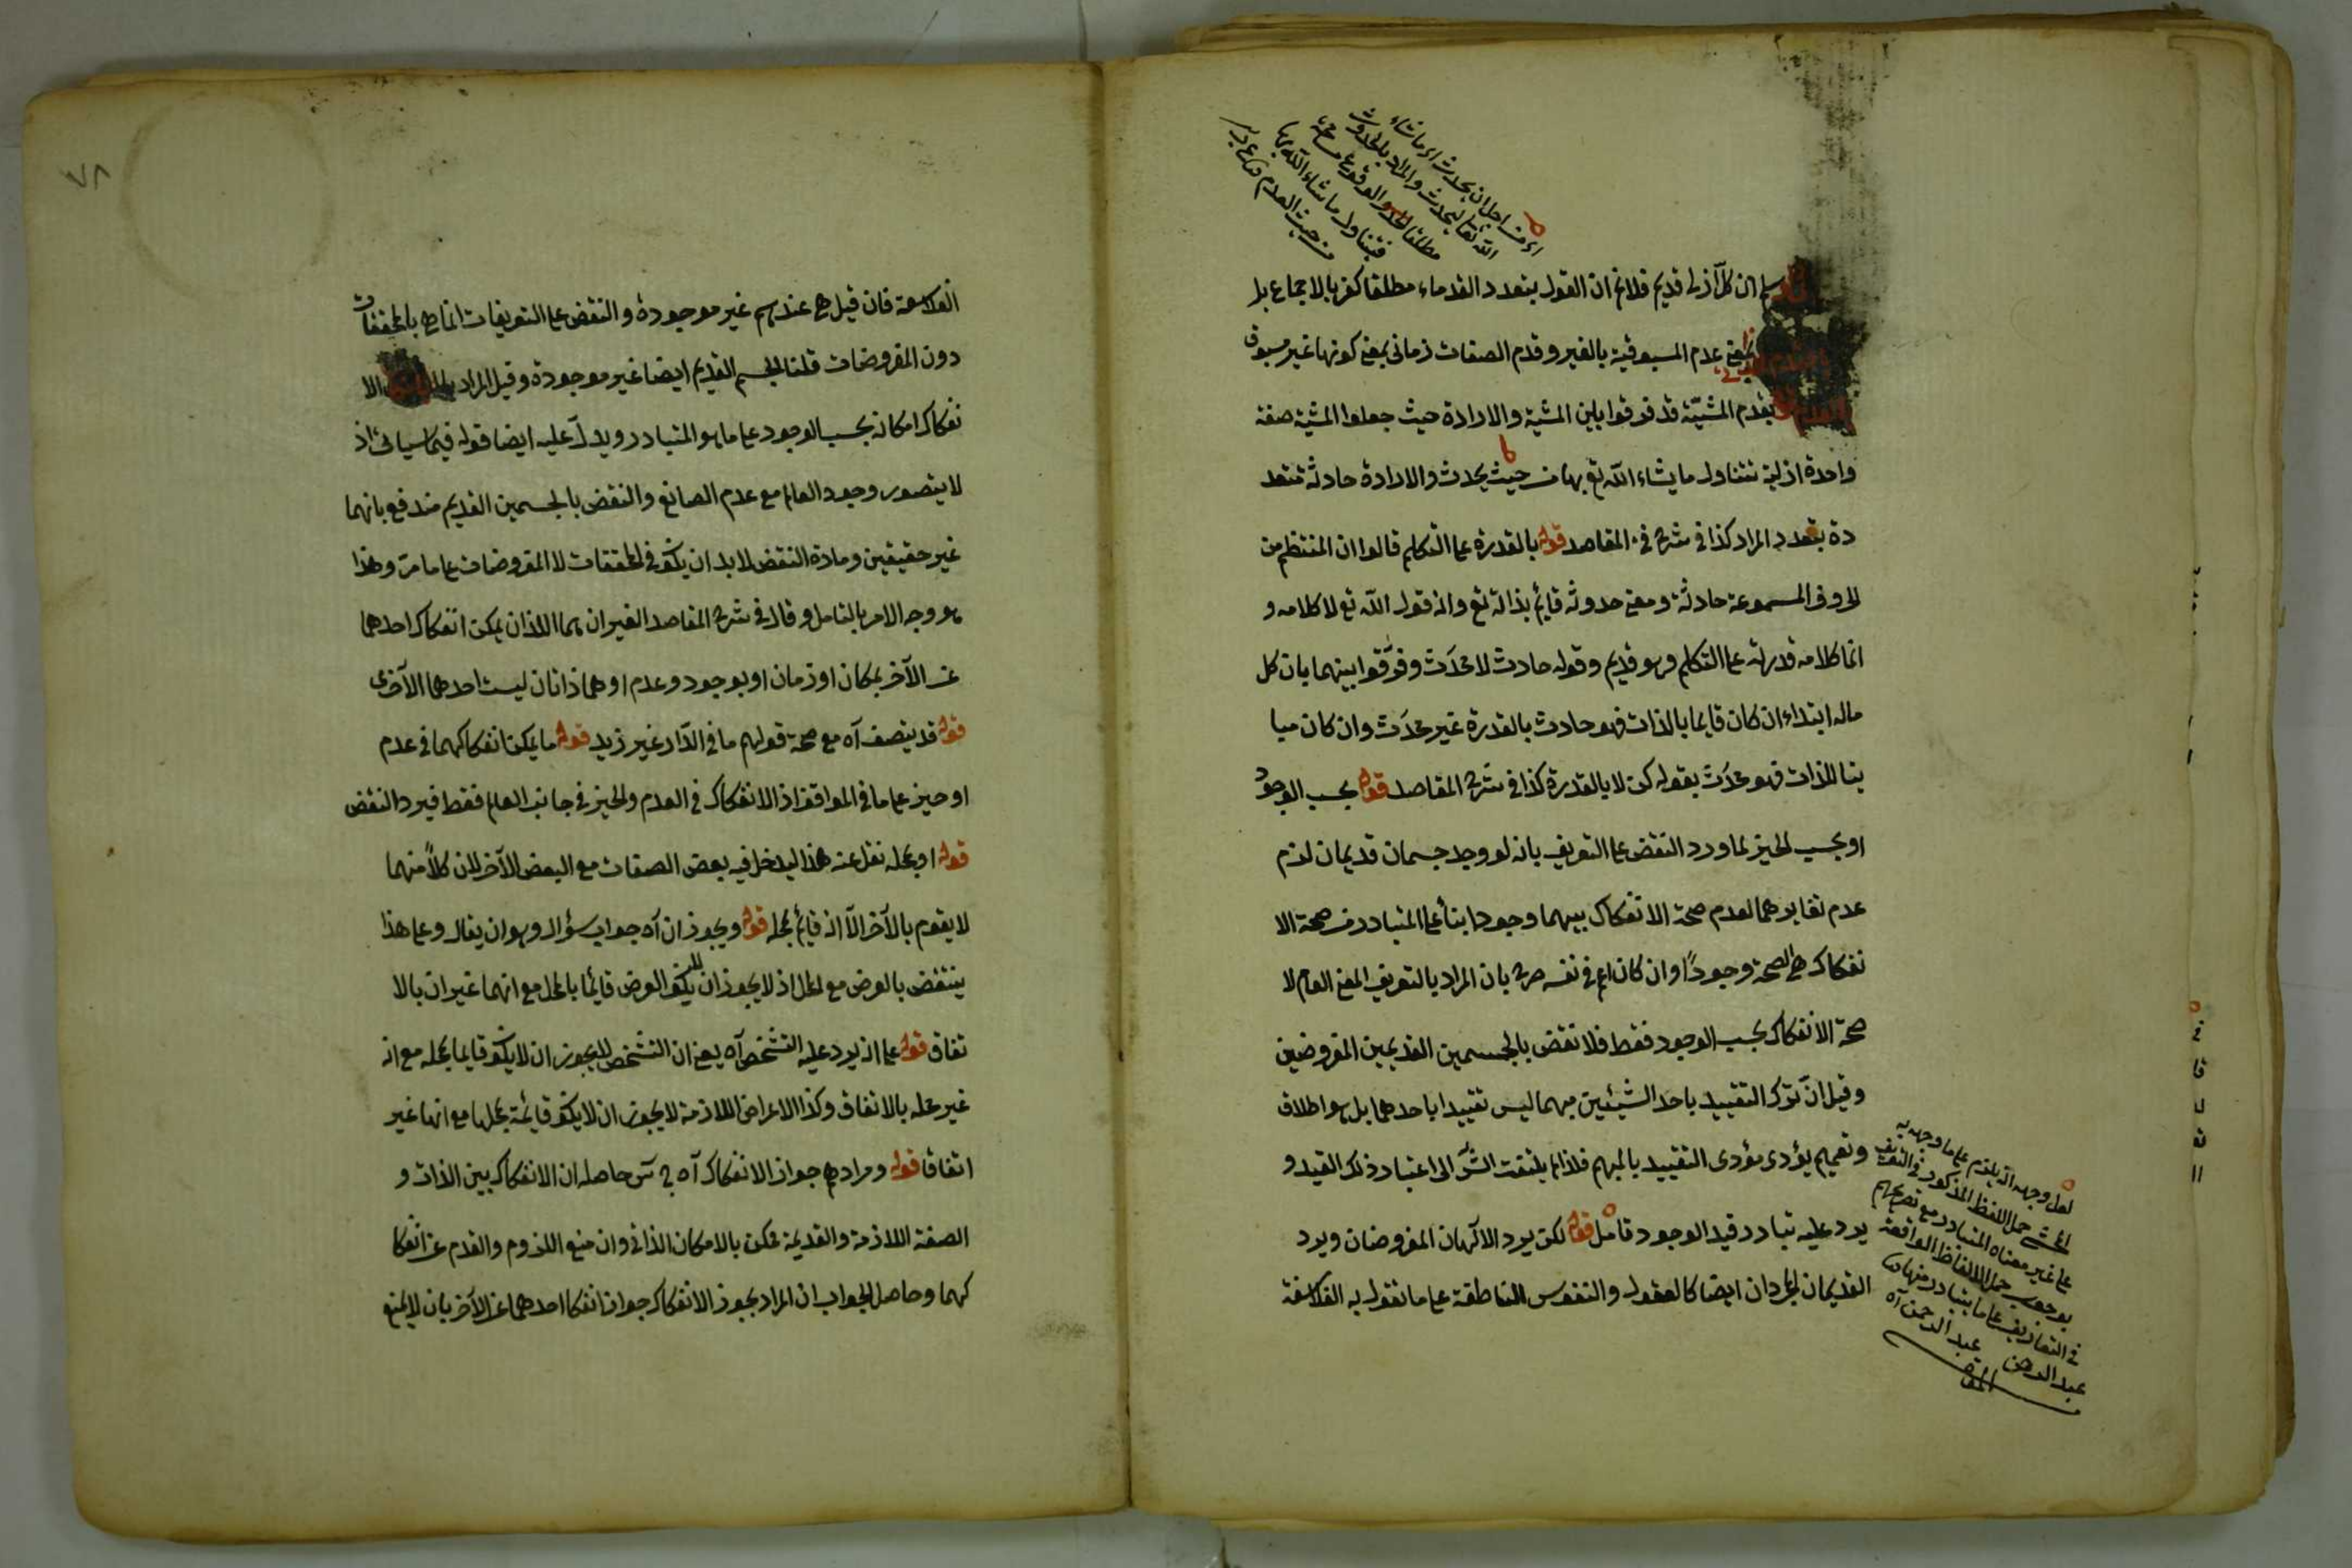 اى من اجل ان يحدث اى ما شاء
الله تعالى ليحدث والمراد بالحدوث
مطلقا الوقوع
فيتناول ما شاء الله بها
من حيث العدم
ان كل ازلى قديم فلانم ان القول بتعدد القدماء مطلقا كفر بالاجماع بل
بمعنى عدم المسبوقية بالغير وقدم الصفات زمانى بمعنى كونها غير مسبوق
بقدم المشيّة قد فرقوا بين المشية والارادة حيث جعلوا المشية صفة
واحدة ازلية تتناول ما يشاء الله تع بها من حيث يحدث والارادة حادثة متعد
دة بتعدد المراد كذا فى شرح المقاصد قوله بالقدرة على التكلم قالوا ان المنتظم من
الحروف المسموعة حادثة ومعنى حدوثه قايم بذاته تع وانه قول الله تع لا كلامه و
انما كلامه قدرته على التكلم وهو قديم وقوله حادث لا محدَث وفرّقوا بينهما بان كل
ماله ابتداء ان كان قايما بالذات فهو حادث بالقدرة غير محدَث وان كان مبا
ينا للذات فهو محدَث بقوله كن لا بالقدرة كذا فى شرح المقاصد قوله بحسب الوجود
او بحسب الحيز لما ورد النقض على التعريف بانه لو وجد جسمان قديمان لزم
عدم تغايرهما لعدم صحة الانفكاك بينهما وجودا بناء على المتبادر من صحة الا
نفكاك هى الصحة وجوداً وان كان اعم فى نفسه صرح بان المراد بالتعريف المعنى العام لا
صحة الانفكاك بحسب الوجود فقط فلا نقض بالجسمين القديمين المفروضين
وقيل انّ ترك التقييد باحد الشيئين مبهما ليس تقييدا باحدهما بل هو اطلاق
وتعميم يؤدى مؤدى التقييد بالمبهم فلذا لم يلتفت الش الى اعتبار ذلك القيد و
يرد عليه تبادر قيد الوجود تامل قوله لكن يرد الآلهان المفروضان ويرد
القديمان المجردان ايضا كالعقول والنفوس الناطقة على ما تقول به الفلاسفة
لعل وجهه انه يلزم على ما وجهه به
المحشى حمل اللفظ المذكور فى التعريف
على غير معناه المتبادر مع تصريحهم
بوجوب حمل الالفاظ الواقعة
فى التعاريف على ما يتبادر منها
عبد الرحمن
٧٨
الفلاسفة فان قيل هى عندهم غير موجودة والنقض على التعريفات انما هى بالمحققات
دون المفروضات قلنا الجسم القديم ايضا غير موجودة وقيل المراد الا
نفكاك امكانه بحسب الوجود على ما هو المتبادر ويدلّ عليه ايضا قوله فيما سيأتى اذ
لا يتصور وجود العالم مع عدم الصانع والنقض بالجسمين القديم مندفع بانهما
غير حقيقين ومادة النقض لابد ان يكون فى المحققات لا المفروضات على ما مرّ وهذا
هو وجه الامر بالتامل وقال فى شرح المقاصد الغيران هما اللذان يمكن انفكاك احدهما
عن الآخر بمكان او زمان او بوجود وعدم او هما ذاتان ليست احدهما الآخرى
قوله قد يتصف آه مع صحة قولهم ما فى الدار غير زيد قوله ما يمكن انفكاكهما فى عدم
او حيز على ما فى المواقف اذ الانفكاك فى العدم والحيز فى جانب العالم فقط فيرد النقض
قوله او بمحله نقل عنه هذا ليدخل فيه بعض الصفات مع البعض الآخر لان كلاً منهما
لا يقوم بالآخر الا انه قايم بمحله قوله ويجوز ان آه جواب سؤال وهو ان يقال وعلى هذا
ينتقض بالعرض مع المحل اذ لا يجوز ان لا يكون العرض قايما بالمحل مع انهما غيران بالا
تفاق قوله على انه يرد عليه التشخص آه يعنى ان التشخص لا يجوز ان لا يكون قايما بمحله مع انه
غير محله بالاتفاق وكذا الاعراض اللازمة لا يجوز ان لا يكون قائمة بمحلها مع انها غير
اتفاقا قوله ومرادهم جواز الانفكاك آه حاصله ان الانفكاك بين الذات و
الصفة اللازمة والقديمة ممكن بالامكان الذاتى وان منع اللزوم والقدم عن انفكا
كهما وحاصل الجواب ان المراد بجواز الانفكاك جواز انفكاك احدهما عن الآخر بان لا يمنع